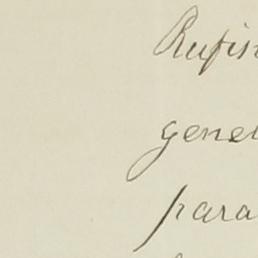 Rufin
gene
para